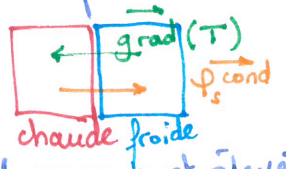 grad (T)
φs cond
chaude froide